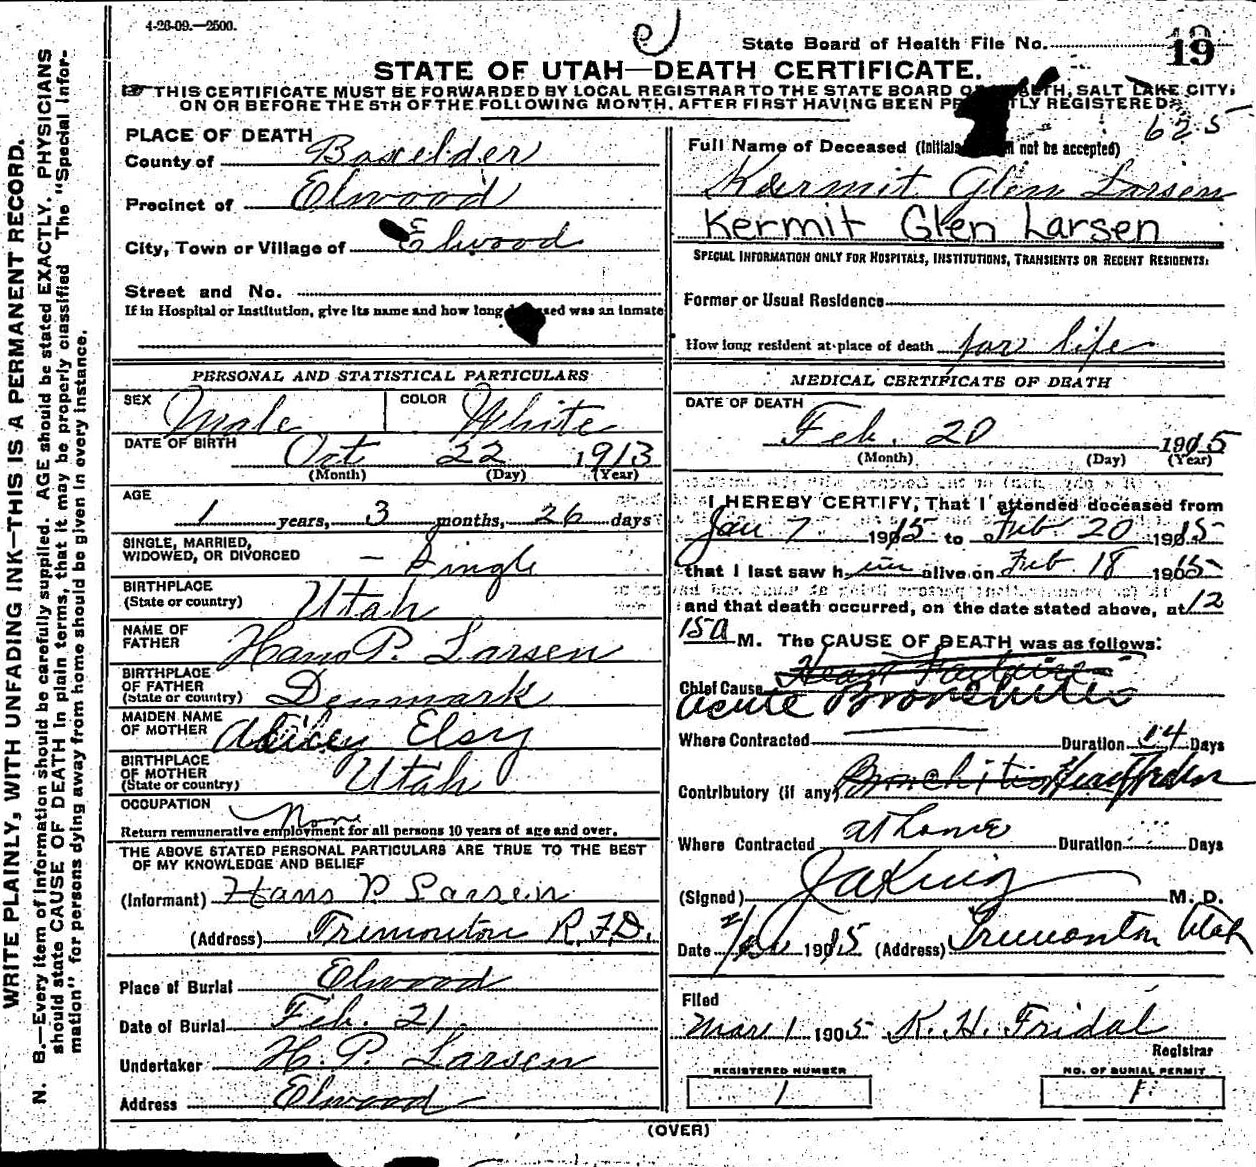 4-26-09.—2500.
State Board of Health File No. 19
STATE OF UTAH—DEATH CERTIFICATE.
THIS CERTIFICATE MUST BE FORWARDED BY LOCAL REGISTRAR TO THE STATE BOARD OF HEALTH, SALT LAKE CITY,
ON OR BEFORE THE 5TH OF THE FOLLOWING MONTH, AFTER FIRST HAVING BEEN REGISTERED.
625
WRITE PLAINLY, WITH UNFADING INK—THIS IS A PERMANENT RECORD.
N. B.—Every item of information should be carefully supplied. AGE should be stated EXACTLY. PHYSICIANS
should state CAUSE OF DEATH in plain terms, that it may be properly classified The "Special Infor-
mation" for persons dying away from home should be given in every instance.
PLACE OF DEATH
County of Boxelder
Precinct of Elwood
City, Town or Village of Elwood
Street and No.
If in Hospital or Institution, give its name and how long deceased was an inmate
PERSONAL AND STATISTICAL PARTICULARS
SEX Male COLOR White
DATE OF BIRTH Oct 22 1913
(Month) (Day) (Year)
AGE
1 years, 3 months, 26 days
SINGLE, MARRIED,
WIDOWED, OR DIVORCED — Single
BIRTHPLACE
(State or country) Utah
NAME OF
FATHER Hans P. Larsen
BIRTHPLACE
OF FATHER
(State or country) Denmark
MAIDEN NAME
OF MOTHER Elsy
BIRTHPLACE
OF MOTHER
(State or country) Utah
OCCUPATION None
Return remunerative employment for all persons 10 years of age and over.
THE ABOVE STATED PERSONAL PARTICULARS ARE TRUE TO THE BEST
OF MY KNOWLEDGE AND BELIEF
(Informant) Hans P Larsen
(Address) Tremonton R.F.D.
Place of Burial Elwood
Date of Burial Feb. 21
Undertaker H. P. Larsen
Address Elwood
Full Name of Deceased (Initials not be accepted)
Kermit Glen Larsen
Kermit Glen Larsen
SPECIAL INFORMATION ONLY FOR HOSPITALS, INSTITUTIONS, TRANSIENTS OR RECENT RESIDENTS:
Former or Usual Residence
How long resident at place of death for life
MEDICAL CERTIFICATE OF DEATH
DATE OF DEATH
Feb. 20 1915
(Month) (Day) (Year)
I HEREBY CERTIFY, That I attended deceased from
Jan 7 1915 to Feb. 20 1915
that I last saw him alive on Feb 18 1915
and that death occurred, on the date stated above, at 12
15 a M. The CAUSE OF DEATH was as follows:
Heart Failure
Chief Cause
acute Bronchitis
Where Contracted Duration 14 Days
Contributory (if any) Bronchitis
Where Contracted at home Duration Days
(Signed) M. D.
Date 1915 (Address) Tremonton Utah
Filed
Mar 1 1905 K. H. Fridal
Registrar
REGISTERED NUMBER
1
NO. OF BURIAL PERMIT
1
(OVER)